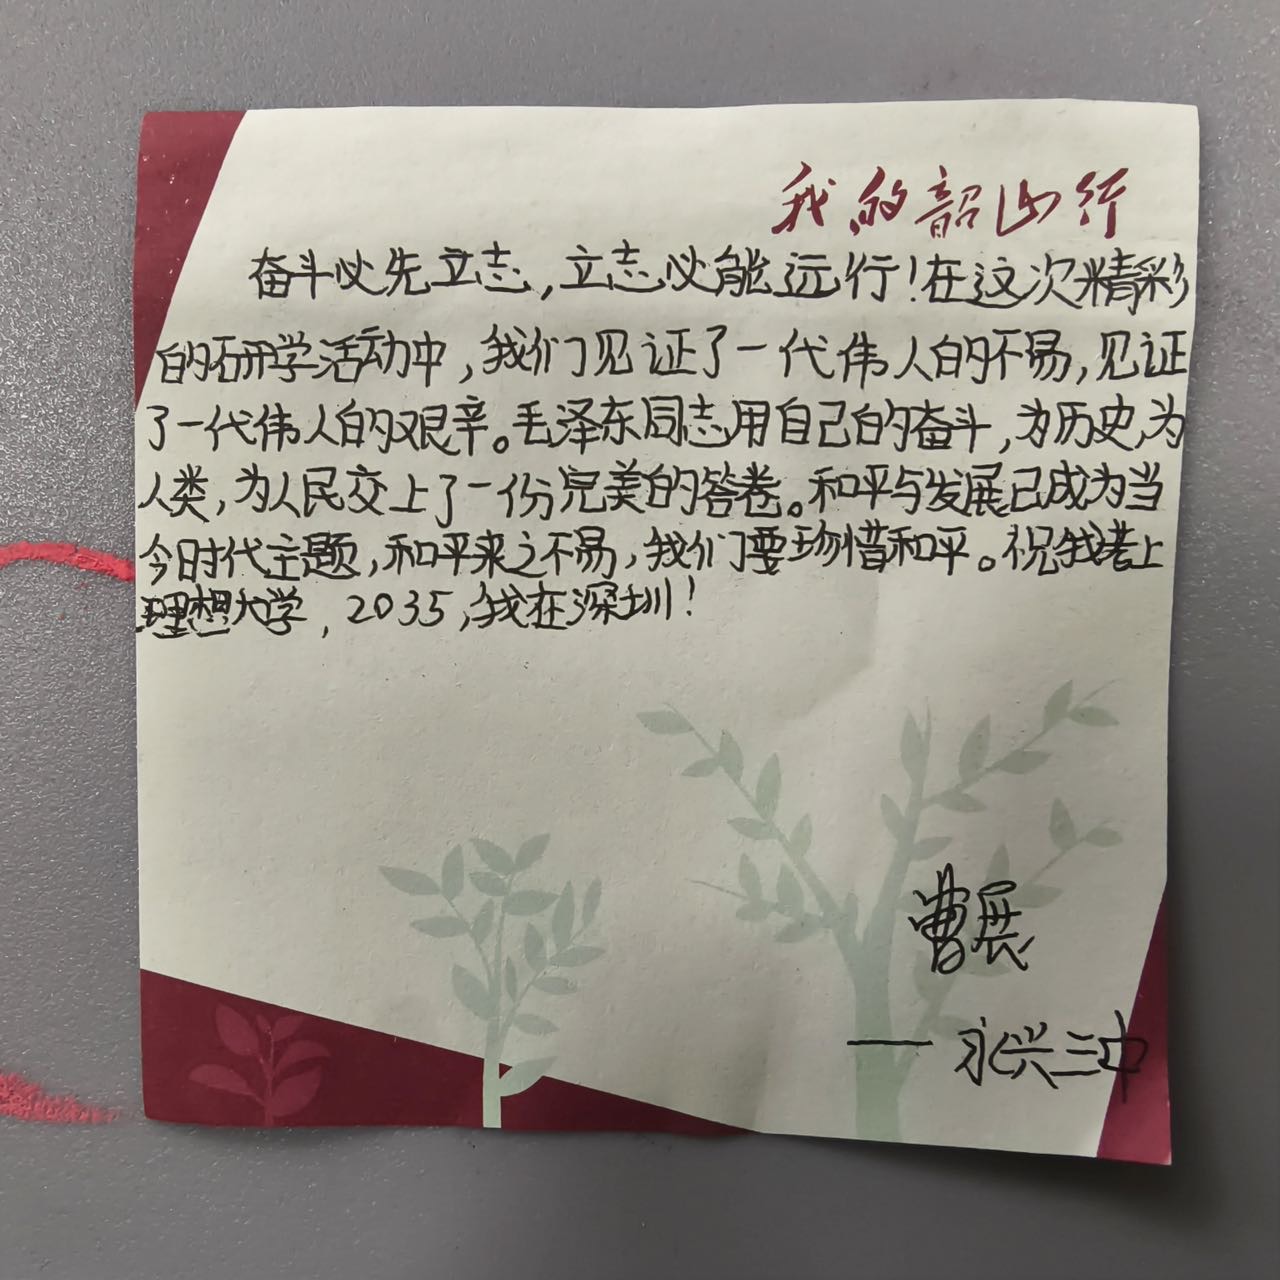 我的韶山行
奋斗必先立志,立志必能远行!在这次精彩
的研学活动中,我们见证了一代伟人的不易,见证
了一代伟人的艰辛。毛泽东同志用自己的奋斗,为历史,为
人类,为人民交上了一份完美的答卷。和平与发展已成为当
今时代主题,和平来之不易,我们要珍惜和平。祝我考上
理想大学,2035,我在深圳!
曹展
——永兴三中